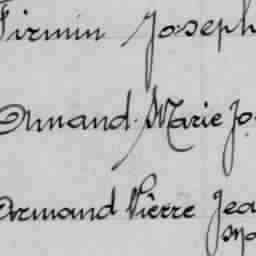 Firmin Joseph
Armand Marie Jo
Armand Pierre Jea